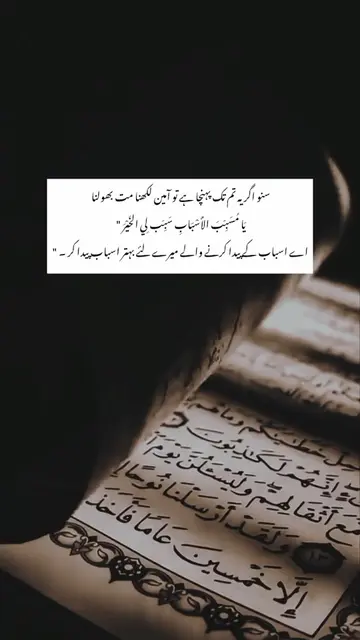 سنو اگر یہ تم تک پہنچا ہے تو آمین لکھنا مت بھولنا
يَا مُسَبِّبَ الأَسْبَابِ سَبِّبْ لِي الْخَيْرَ "
اے اسباب کے پیدا کرنے والے میرے لئے بہتر اسباب پیدا کر ۔ "
إِنَّهُمْ لَكَٰذِبُونَ
مَّعَ أَثْقَالِهِمْ وَلَيُسْـَٔلُنَّ يَوْمَ
١٣ وَلَقَدْ أَرْسَلْنَا نُوحًا
إِلَّا خَمْسِينَ عَامًا فَأَخَذَ